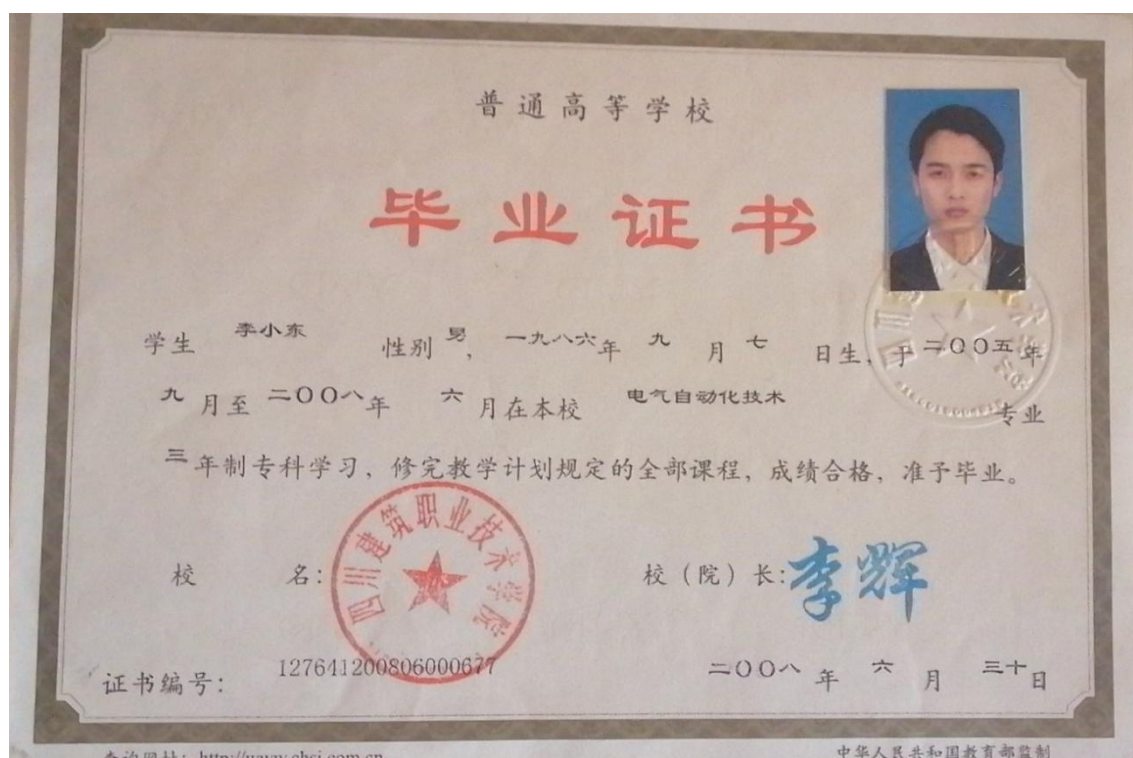 普通高等学校
毕业证书
学生 李小东 性别 男, 一九八六年 九 月 七 日生, 于 二〇〇五 年
九 月至 二〇〇八年 六 月在本校 电气自动化技术 专业
三年制专科学习, 修完教学计划规定的全部课程, 成绩合格, 准予毕业。
校 名: 四川建筑职业技术学院 校（院）长: 李辉
证书编号: 127641200806000677 二〇〇八 年 六 月 三十日
查询网址: http://www.chsi.com.cn 中华人民共和国教育部监制